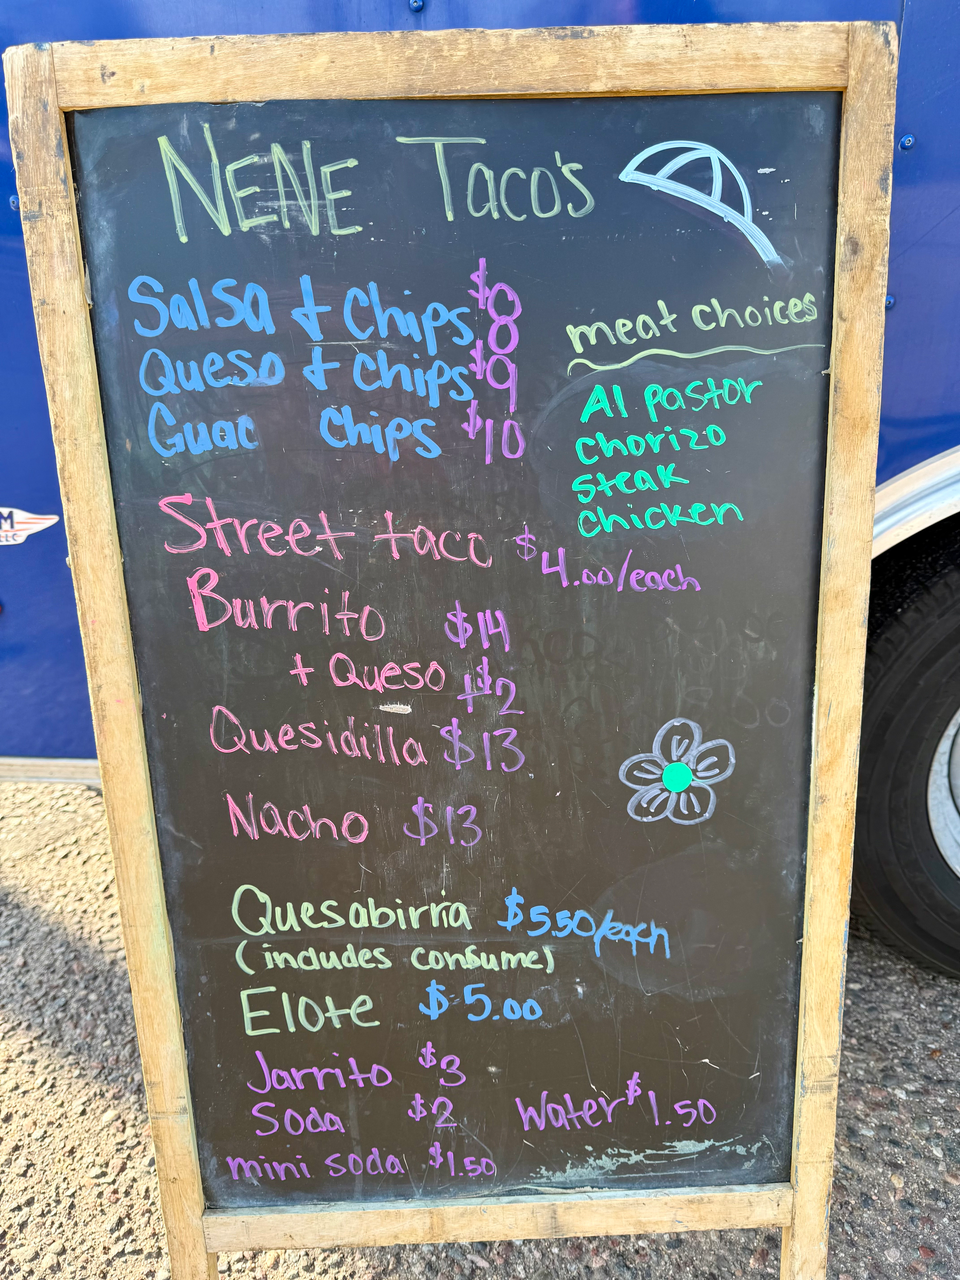 NENE Taco's
Salsa + Chips $8
Queso + Chips $9
Guac Chips $10
meat choices
Al pastor
chorizo
steak
chicken
Street taco $4.00/each
Burrito $14
+ Queso +$2
Quesidilla $13
Nacho $13
Quesabirria $5.50/each
(includes consume)
Elote $5.00
Jarrito $3
Soda $2
Water $1.50
mini soda $1.50
M
LLC